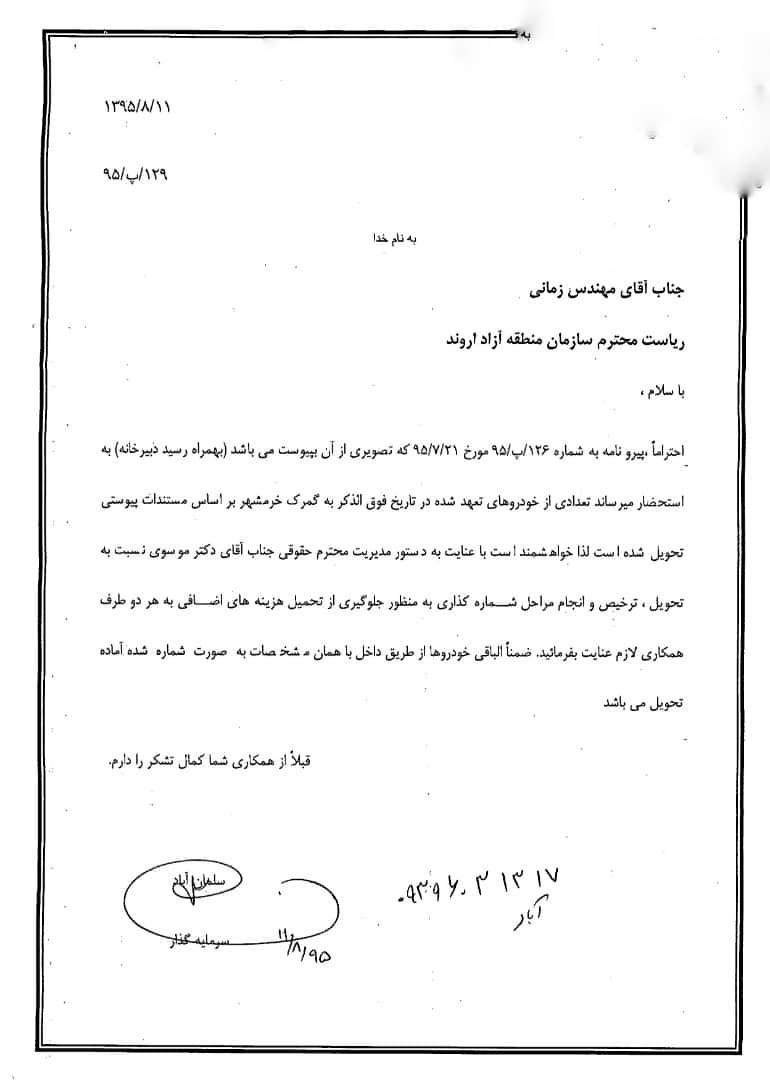 به
۱۳۹۵/۸/۱۱
۱۲۹/پ/۹۵
به نام خدا
جناب آقای مهندس زمانی
ریاست محترم سازمان منطقه آزاد اروند
با سلام ،
احتراماً ،پیرو نامه به شماره ۱۲۶/پ/۹۵ مورخ ۹۵/۷/۲۱ که تصویری از آن بپیوست می باشد (بهمراه رسید دبیرخانه) به
استحضار میرساند تعدادی از خودروهای تعهد شده در تاریخ فوق الذکر به گمرک خرمشهر بر اساس مستندات پیوستی
تحویل شده است لذا خواهشمند است با عنایت به دستور مدیریت محترم حقوقی جناب آقای دکتر موسوی نسبت به
تحویل ، ترخیص و انجام مراحل شماره گذاری به منظور جلوگیری از تحمیل هزینه های اضافی به هر دو طرف
همکاری لازم عنایت بفرمائید. ضمناً الباقی خودروها از طریق داخل با همان مشخصات به صورت شماره شده آماده
تحویل می باشد
قبلاً از همکاری شما کمال تشکر را دارم.
سلمان آباد
سرمایه گذار
۱۱/۸/۹۵